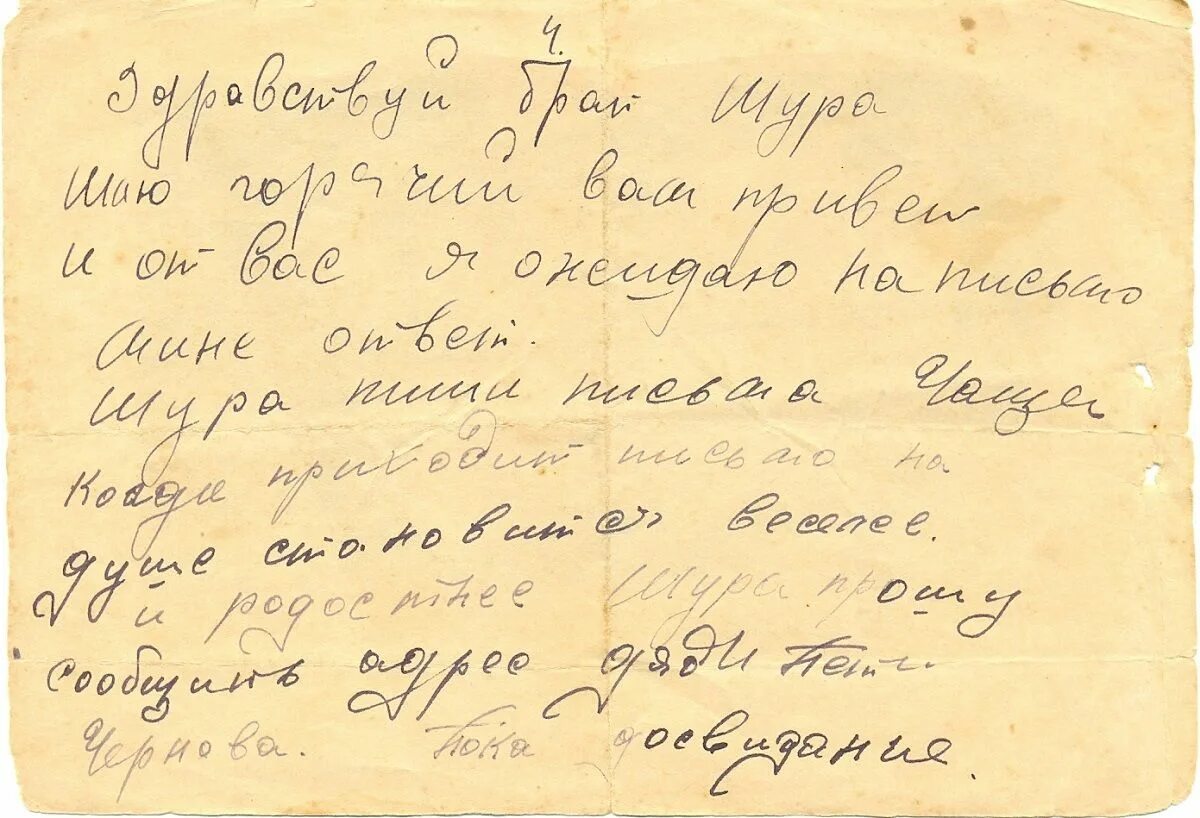 4.
Здравствуй брат Шура
Шлю горячий вам привет
и от вас я ожидаю на письмо
мине ответ.
Шура пиши письма Чаще
когда приходит письмо на
душе становится веселее.
и родостнее Шура прошу
сообщить адрес дяди Пети
Чернова. Пока досвидание.